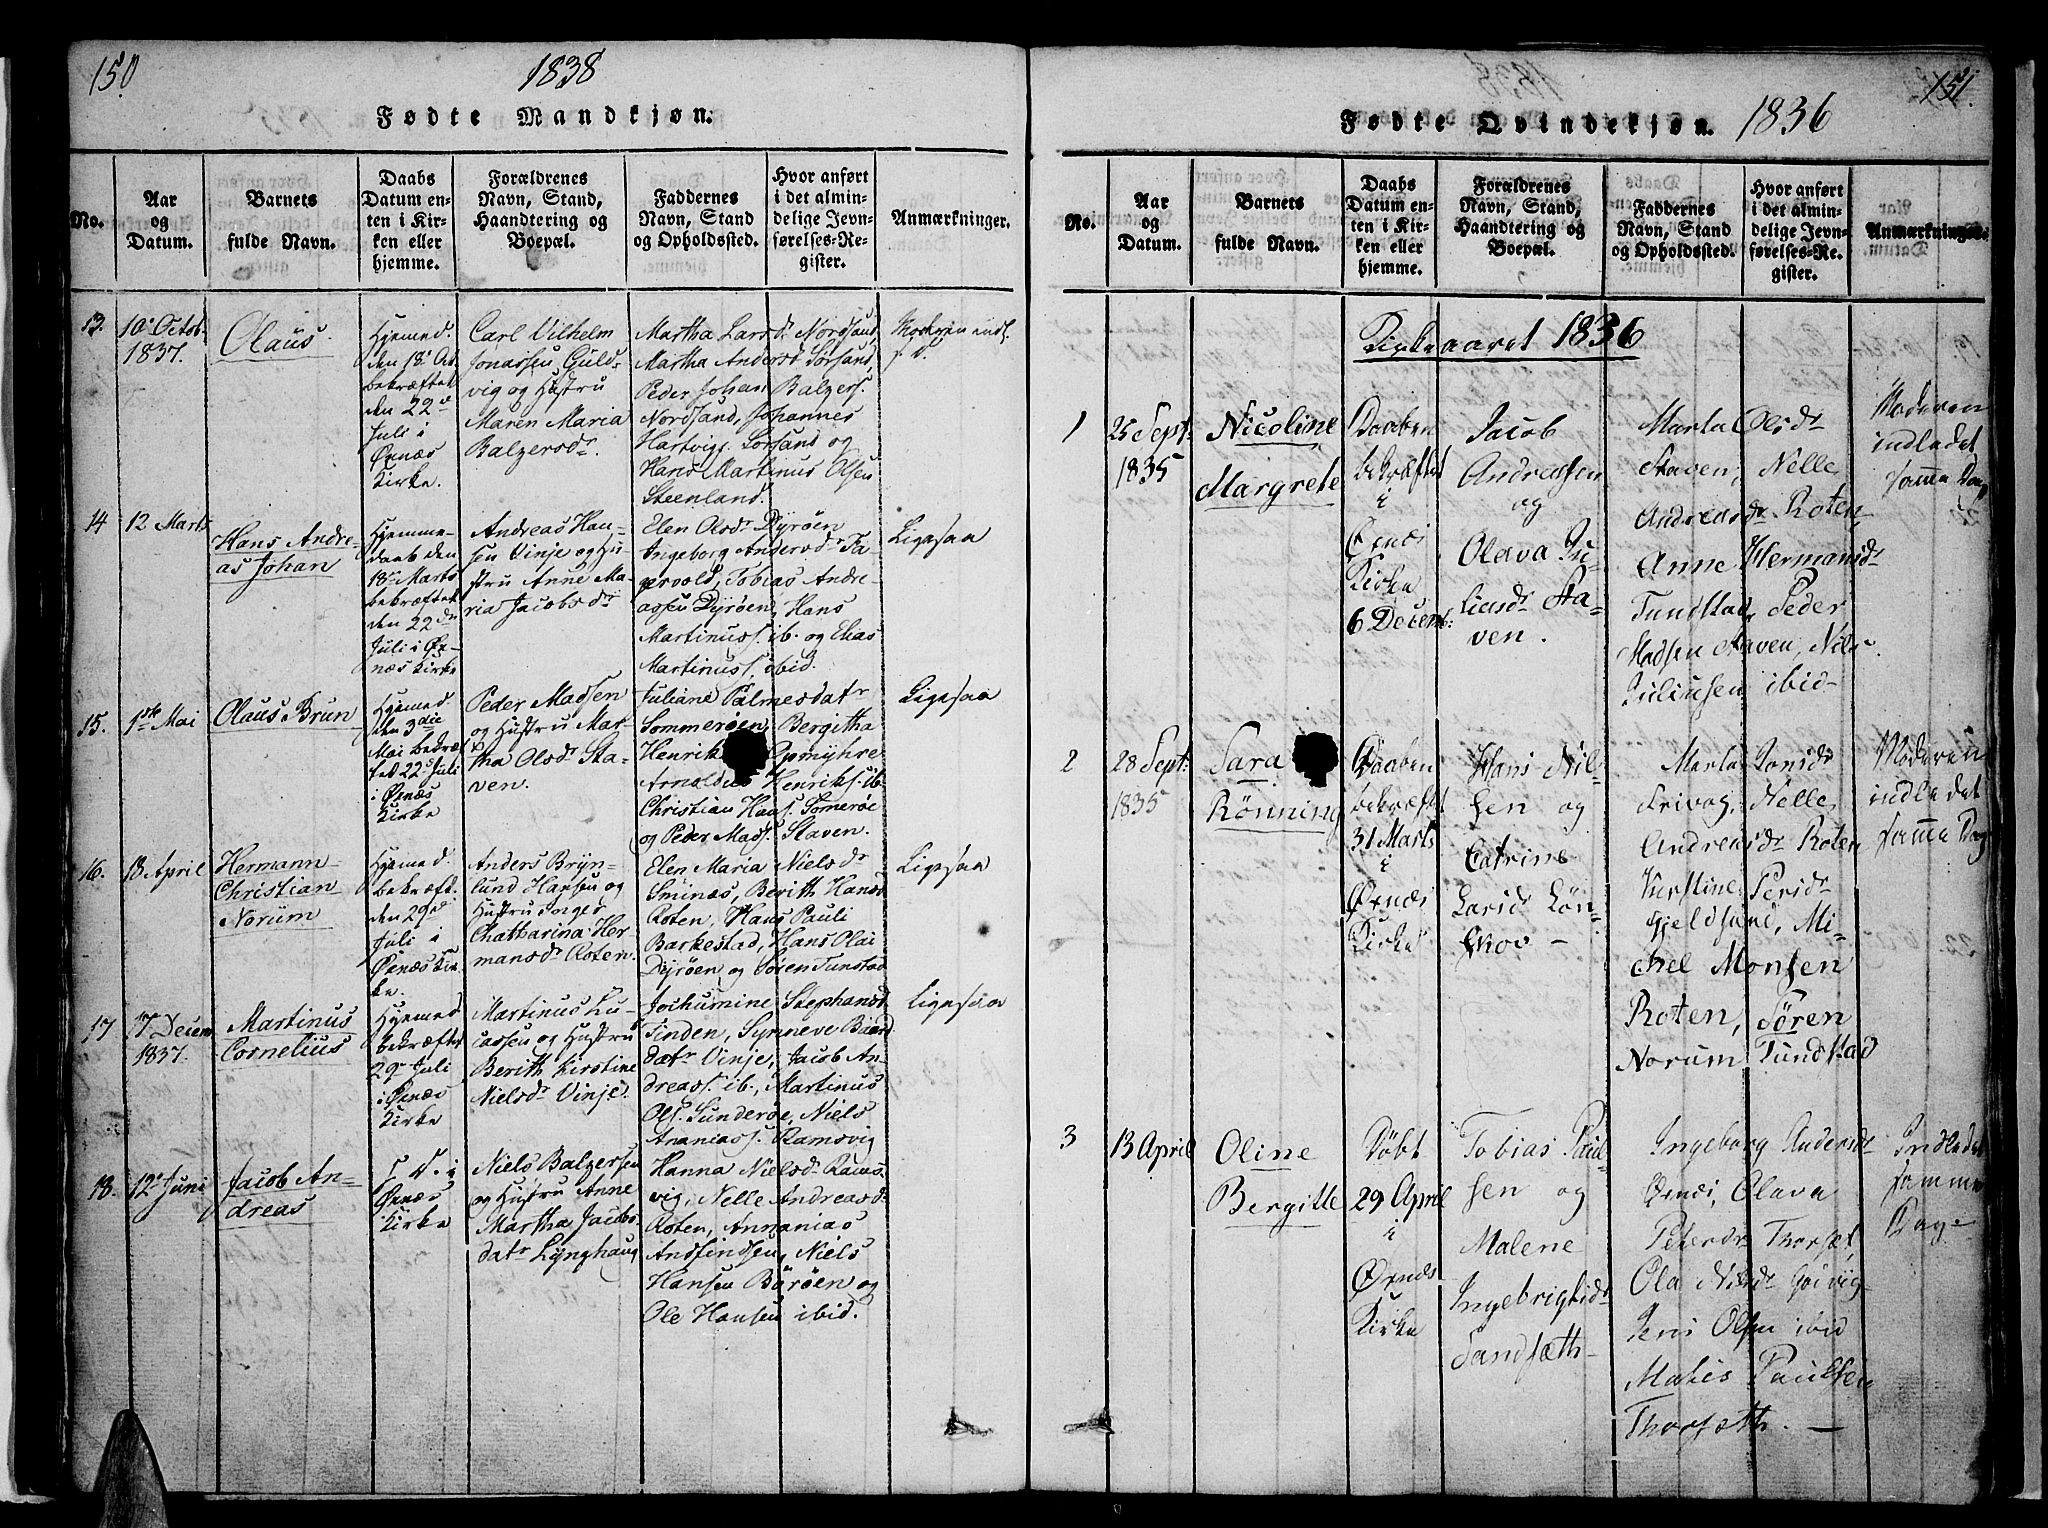 150
1838
Fødte Mandkjøn.
No.
Aar
og
Datum.
Barnets
fulde Navn.
Daabs
Datum en-
ten i Kir-
ken eller
hjemme.
Forældrenes
Navn, Stand,
Haandtering og
Boepæl.
Faddernes
Navn, Stand
og Opholdssted.
Hvor anført
i det almin-
delige Jevn-
førelses-Re-
gister.
Anmærkninger.
13.
10. Octob.
1837.
Olaus.
Hjemmed.
den 18
bekræftet
den 22
Juli i
Øxnæs
Kirke.
Carl Vilhelm
Jonassen Guld-
vig og Hustru
Maren Maria
Balzersdr.
Martha Larsdr Nordsand,
Martha Andersd Sørsand,
Peder Johan Balzers.
Nordsand, Johannes
Hartvigs. Sørsand og
Hans Martinus Olsen
Steenland.
Moderen indl.
s. D.
14
12 Marts
Hans Andre-
as Johan
Hjemme-
daab den
18 Marts
bekræftet
den 22
Juli i Øx-
næs Kirke
Andreas Han-
sen Vinje og Hu-
stru Anne Ma-
ria Jacobsdr
Elen Olsdr Dyrøen
Ingeborg Andersdr Fa-
gervold, Tobias Andre-
assen Dyrøen, Hans
Martinuss. ib. og Elias
Martinuss. ibid.
Ligesaa
15.
1ste Mai
Olaus Brun
Hjemmed.
den 3die
Mai bekræf-
tet 22 Juli
i Øxnæs
Kirke
Peder Madsen
og Hustru Mar-
tha Olsdr Sta-
ven.
Juliane Palmesdatr
Sommerøen, Bergitha
Henrik Opmyhre
Arnoldus Henriks. ib.
Christian Hans. Somerøe
og Peder Mads. Staven.
Ligesaa
16.
18 April
Hermann
Christian
Norum
Hjemmed.
bekræft.
den 29
Juli i
Øxnæs Kir-
ke.
Anders Bryn-
lund Hansen og
Hustru Inger
Chatharina Her-
mansdr Roten.
Elen Maria Nielsdr
Smines, Berith Hansd
Roten, Hans Pauli
Barkestad, Hans Olai
Dyrøen og Søren Tunstad
Ligesaa
17
17 Decem
1837.
Martinus
Cornelius
Hjemmed
bekræftet
29 Juli
i Øxnæs
Kirke
Martinus Lu-
cassen og Hustru
Berith Kirstine
Nielsdr Vinje.
Jochumine Stephansd
Tinden, Synneve Baard
datr Vinje, Jacob An-
dreass. ib., Martinus
Ols. Sunderøe, Niels
Ananiass. Ramsvig
Ligesaa
18.
12 Juni
Jacob An-
dreas
s. D. i
Øxnæs
Kirke
Niels Balzersen
og Hustru Anne
Martha Jacobs-
datr Lynghaug
Hanna Nielsdr Rams-
vig, Nelle Andreasd.
Roten, Annanias
Andfindsen, Niels
Hansen Barøen og
Ole Hansen ibid.
151.
Fødte Qvindekjøn. 1836
No.
Aar
og
Datum.
Barnets
fulde Navn.
Daabs
Datum en-
ten i Kir-
ken eller
hjemme.
Forældrenes
Navn, Stand,
Haandtering og
Boepæl.
Faddernes
Navn, Stand
og Opholdssted.
Hvor anført
i det almin-
delige Jevn-
førelses-Re-
gister.
Anmærkninger.
Kirkeaaret 1836
1
25 Sept.
1835
Nicoline
Margrete
Daaben
bekræftet
i
Øxnæs
Kirke
6 Decemb:
Jacob
Andreassen
og
Olava Ju-
liusdr Sta-
ven.
Marta Olsdr
Staven, Nelle
Andreasdr Roten,
Anne Hermansdr
Tundstad, Peder
Madsen Staven, Nils
Juliusen ibid-
Moderen
indledet
samme Dag
2
28 Sept:
1835
Sara
Rönning
Daaben
bekræftet
31 Marts
i
Øxnæs
Kirke
Hans Nil-
sen og
Catrine
Larsdr Løn-
skov -
Marta Jonsdr
Frivog, Nelle
Andreasdr Roten
Kirstine Persdr
Gjeldsand, Mi-
chel Monsen
Roten, Søren
Norum Tundstad
Moderen
indledet
samme Dag
3
13 April
Oline
Bergitte
Døbt
29 April
i
Øxnæs
Kirke
Tobias Paul-
sen og
Malene
Ingebrigtsdr
Sandsæth-
Ingeborg Andersdr
Øxnæs, Olava
Petersdr Thorsæt,
Ola Nilsdr
Jens Olsen ibid
Mathis Paulsen
Thorsæth. -
Indledet
samme
Dag-